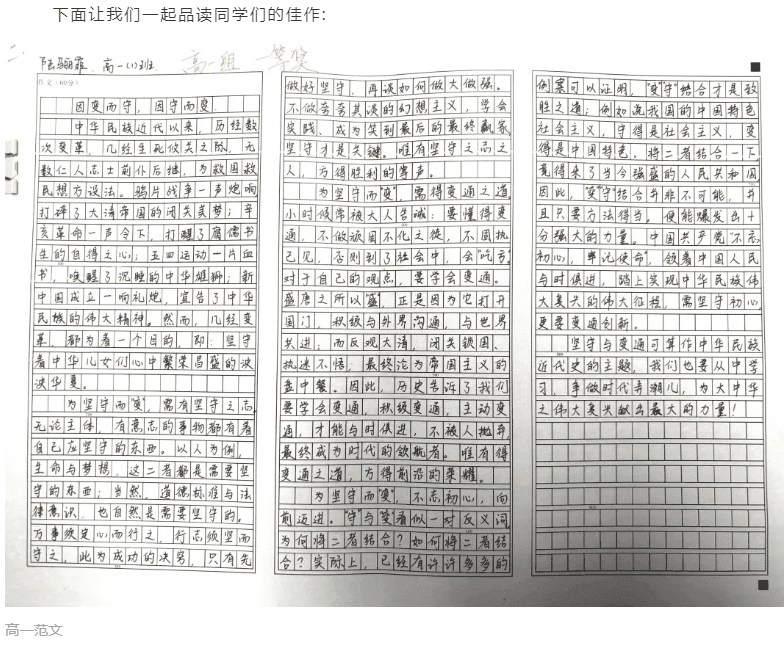 下面让我们一起品读同学们的佳作:
二、
高一(1)班
高一组 一等奖
作文(60分)
因变而守,因守而变
中华民族近代以来,历经数
次变革,几经生死攸关之际,无
数仁人志士前仆后继,为救国救
民想方设法。鸦片战争一声炮响
打碎了大清帝国的闭关美梦;辛
亥革命一声令下,打醒了腐儒书
生的自得之心;五四运动一片血
书,唤醒了沉睡的中华雄狮;新
中国成立一响礼炮,宣告了中华
民族的伟大精神。然而,几经变
革,都为着一个目的,即:坚守
着中华儿女们心中繁荣昌盛的泱
泱华夏。
为坚守而“变”,需有坚守之志。
无论主体,有意志的事物都有着
自己应坚守的东西。以人为例,
生命与梦想,这二者都是需要坚
守的东西;当然,道德标准与法
律意识,也自然是需要坚守的。
万事须定心而行之,行志须坚而
守之,此为成功的决窍,只有先
做好坚守,再谈如何做大做强。
不做夸夸其谈的幻想主义,学会
实践、成为笑到最后的最终赢家,
坚守才是关键。唯有坚守之志之
人,方得胜利的鸾声。
为坚守而“变”,需得变通之道。
小时候常被大人告诫:要懂得变
通,不做顽固不化之徒,不固执
己见,否则到了社会中,会“吃亏”。
对于自己的观点,要学会变通。
盛唐之所以“盛”,正是因为它打开
国门,积极与外界沟通,与世界
共进;而反观大清,闭关锁国、
执迷不悟,最终沦为帝国主义的
盘中餐。因此,历史告诉了我们
要学会变通,积极变通,主动变
通,才能与时俱进,不被人抛弃,
最终成为时代的领航者。唯有得
变通之道,方得前沿的荣耀。
为坚守而“变”,不忘初心,向
前迈进。“守”与“变”看似一对反义词,
为何将二者结合?如何将二者结
合?实际上,已经有许许多多的
例案可以证明,“变”“守”结合才是致
胜之道;例如说我国的中国特色
社会主义,守得是社会主义,变
得是中国特色。将二者结合一下,
竟得来了当今强盛的人民共和国。
因此,“变”“守”结合并非不可能,并
且只要方法得当,便能爆发出十
分强大的力量。中国共产党“不忘
初心,牢记使命”,领着中国人民
与时俱进,踏上实现中华民族伟
大复兴的伟大征程,需坚守初心,
更要变通创新。
坚守与变通可算作中华民族
近代史的主题,我们也要从中学
习,争做时代弄潮儿,为大中华
之伟大复兴献出最大的力量!
高一范文